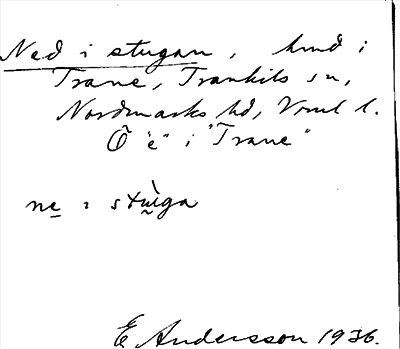 Ned i stugan, hmd i
Trane, Trankils sn,
Nordmarks hd, Vrml l.
Õ "e" i "Trane"
ne i stùga
E Andersson 1936.